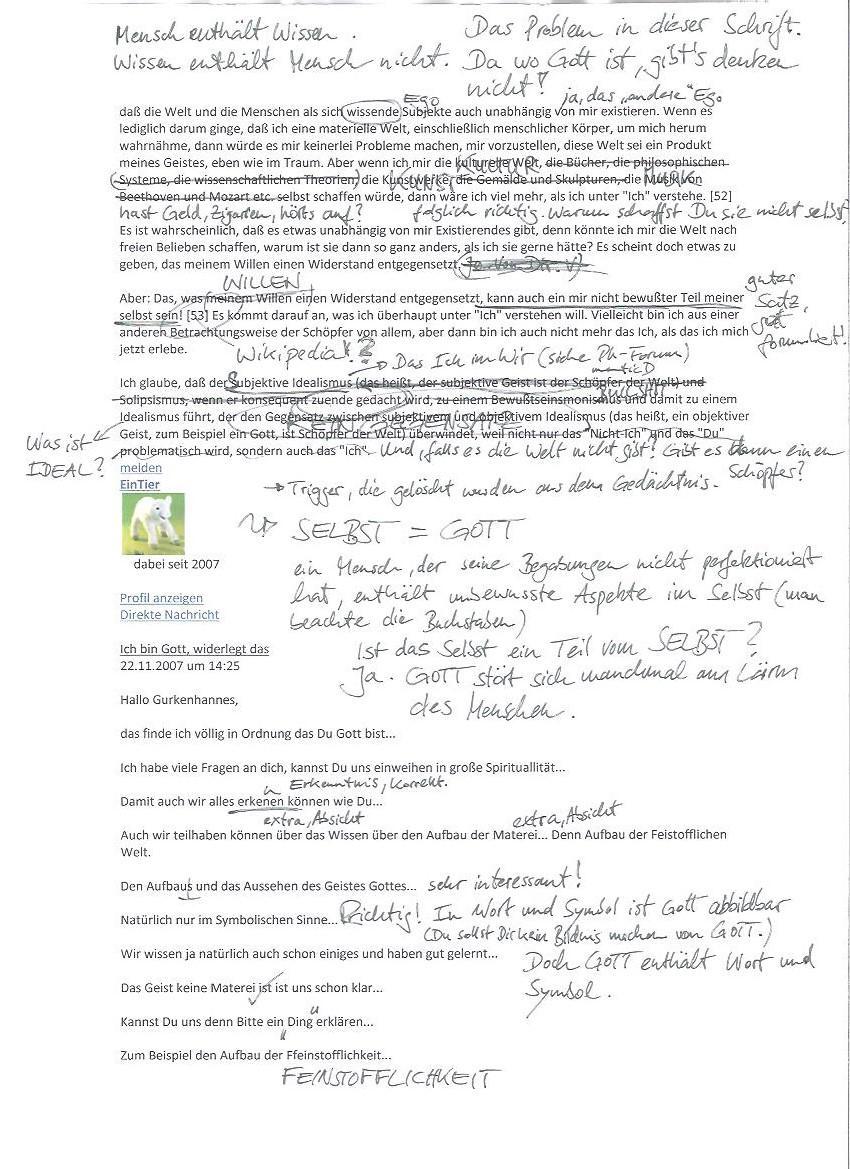 Mensch enthält Wissen.
Wissen enthält Mensch nicht.
Das Problem in dieser Schrift.
Da wo Gott ist, gibt's denken
nicht!
Ego
ja, das „andere" Ego
daß die Welt und die Menschen als sich wissende Subjekte auch unabhängig von mir existieren. Wenn es
lediglich darum ginge, daß ich eine materielle Welt, einschließlich menschlicher Körper, um mich herum
wahrnähme, dann würde es mir keinerlei Probleme machen, mir vorzustellen, diese Welt sei ein Produkt
meines Geistes, eben wie im Traum. Aber wenn ich mir die kulturelle Welt, die Bücher, die philosophischen
KULTUR
Systeme, die wissenschaftlichen Theorien, die Kunstwerke, die Gemälde und Skulpturen, die Musik von
KUNST
MUSIK
Beethoven und Mozart etc. selbst schaffen würde, dann wäre ich viel mehr, als ich unter "Ich" verstehe. [52]
hast Geld, Zigarren, hörts auf? folglich richtig. Warum schaffst Du sie nicht selbst.
Es ist wahrscheinlich, daß es etwas unabhängig von mir Existierendes gibt, denn könnte ich mir die Welt nach
freien Belieben schaffen, warum ist sie dann so ganz anders, als ich sie gerne hätte? Es scheint doch etwas zu
geben, das meinem Willen einen Widerstand entgegensetzt.
WILLEN
Aber: Das, was meinem Willen einen Widerstand entgegensetzt, kann auch ein mir nicht bewußter Teil meiner
selbst sein! [53] Es kommt darauf an, was ich überhaupt unter "Ich" verstehen will. Vielleicht bin ich aus einer
anderen Betrachtungsweise der Schöpfer von allem, aber dann bin ich auch nicht mehr das Ich, als das ich mich
jetzt erlebe.
guter
Satz,
gut
formuliert!
Wikipedia!?
Das Ich im Wir (siehe Ph-Forum)
Ich glaube, daß der Subjektive Idealismus (das heißt, der subjektive Geist ist der Schöpfer der Welt) und
Solipsismus, wenn er konsequent zuende gedacht wird, zu einem Bewußtseinsmonismus und damit zu einem
BULLSHIT
Idealismus führt, der den Gegensatz zwischen subjektivem und objektivem Idealismus (das heißt, ein objektiver
KEIN GEGENSATZ
Geist, zum Beispiel ein Gott, ist Schöpfer der Welt) überwindet, weil nicht nur das "Nicht-Ich" und das "Du"
problematisch wird, sondern auch das "Ich".
Und, falls es die Welt nicht gibt! Gibt es dann einen
Schöpfer?
Was ist
IDEAL?
melden
EinTier
Trigger, die gelöscht wurden aus dem Gedächtnis.
SELBST = GOTT
dabei seit 2007
ein Mensch, der seine Begabungen nicht perfektioniert
hat, enthält unbewusste Aspekte im Selbst (man
beachte die Buchstaben)
Profil anzeigen
Direkte Nachricht
Ist das Selbst ein Teil vom SELBST?
Ja. GOTT stört sich manchmal am Lärm
des Menschen.
Ich bin Gott, widerlegt das
22.11.2007 um 14:25
Hallo Gurkenhannes,
das finde ich völlig in Ordnung das Du Gott bist...
Ich habe viele Fragen an dich, kannst Du uns einweihen in große Spirituallität...
Erkenntnis, korrekt.
Damit auch wir alles erkenen können wie Du...
extra, Absicht
extra, Absicht
Auch wir teilhaben können über das Wissen über den Aufbau der Materei... Denn Aufbau der Feistofflichen
Welt.
Den Aufbaus und das Aussehen des Geistes Gottes... sehr interessant!
Natürlich nur im Symbolischen Sinne... Richtig! In Wort und Symbol ist Gott abbildbar
(Du sollst Dir kein Bildnis machen von GOTT.)
Wir wissen ja natürlich auch schon einiges und haben gut gelernt...
Doch GOTT enthält Wort und
Symbol.
Das Geist keine Materei ist ist uns schon klar...
Kannst Du uns denn Bitte ein Ding erklären...
Zum Beispiel den Aufbau der Ffeinstofflichkeit...
FEINSTOFFLICHKEIT